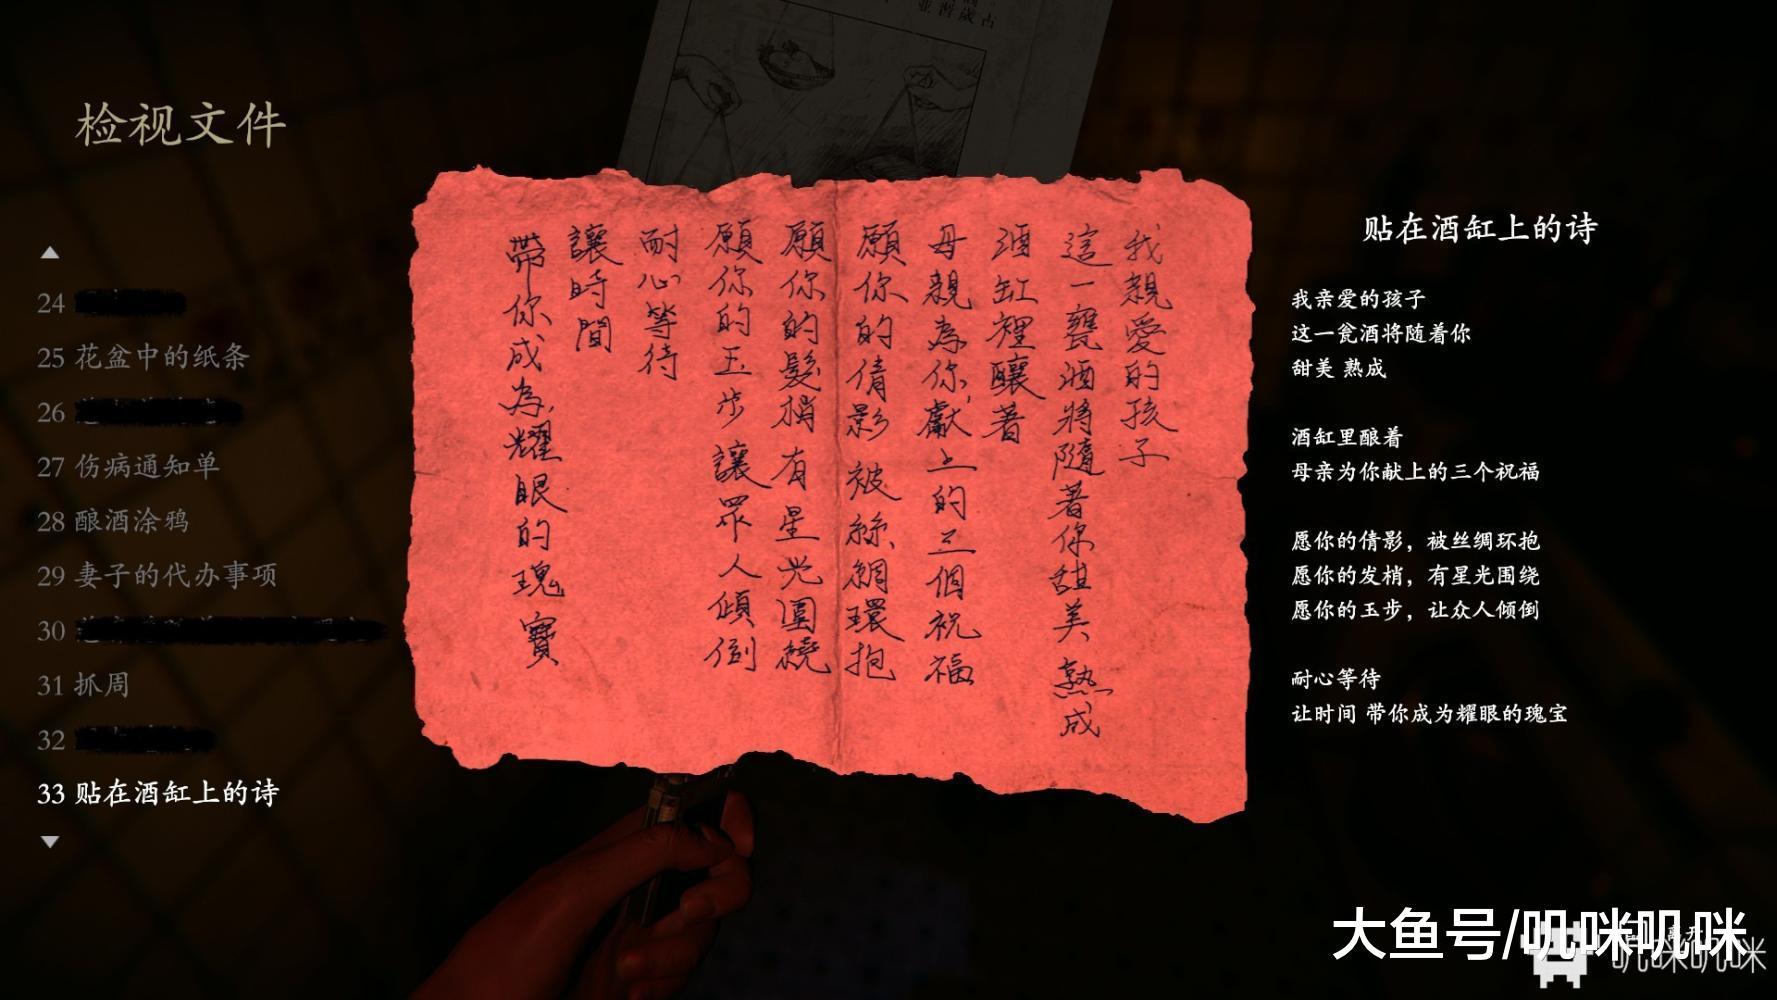 检视文件
24
25 花盆中的纸条
26
27 伤病通知单
28 酿酒涂鸦
29 妻子的代办事项
30
31 抓周
32
33 贴在酒缸上的诗
我親愛的孩子
這一甕酒將隨著你甜美 熟成
酒缸裡釀著
母親為你獻上的三個祝福
願你的倩影 被絲綢環抱
願你的髮梢 有星光圍繞
願你的玉步 讓眾人傾倒
耐心等待
讓時間
帶你成為耀眼的瑰寶
贴在酒缸上的诗
我亲爱的孩子
这一瓮酒将随着你
甜美 熟成
酒缸里酿着
母亲为你献上的三个祝福
愿你的倩影，被丝绸环抱
愿你的发梢，有星光围绕
愿你的玉步，让众人倾倒
耐心等待
让时间 带你成为耀眼的瑰宝
离开
大鱼号/叽咪叽咪
叽咪叽咪